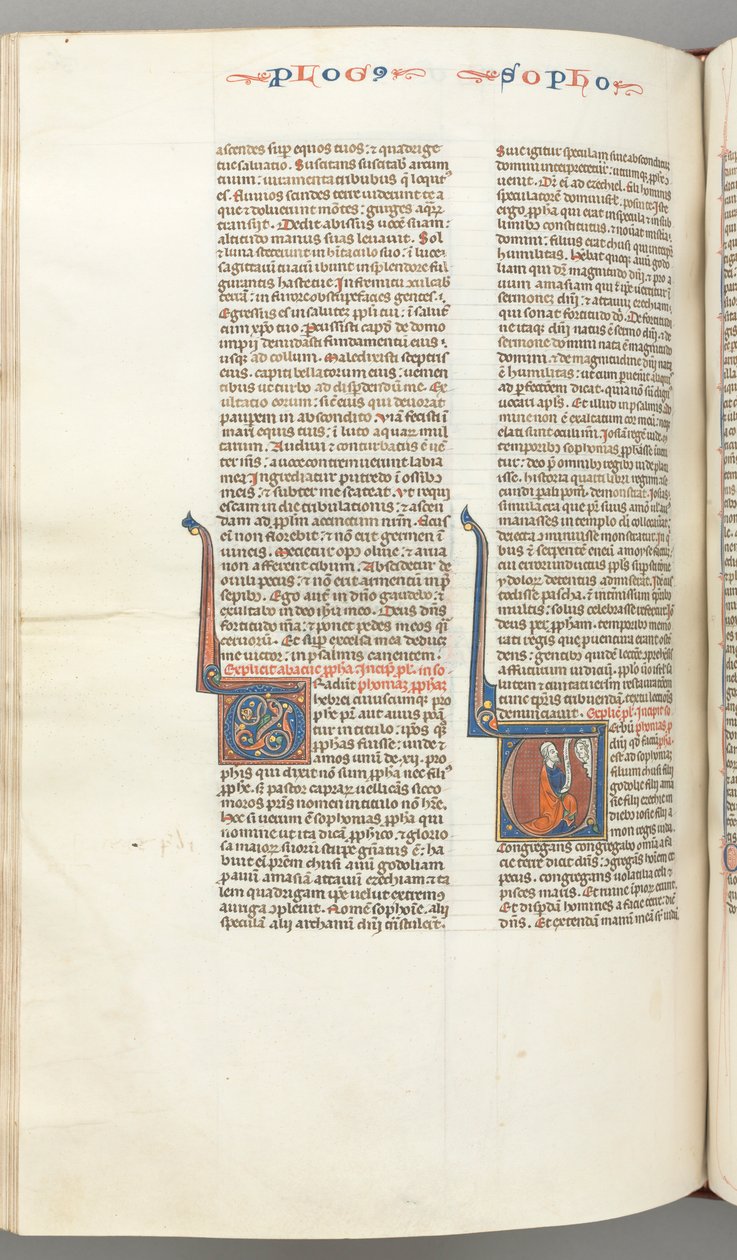 PLOG9 SOPHO
ascendes sup equos tuos: ⁊ quadrige
tue saluatio. Suscitans suscitab arcum
tuum: iuramenta tribubus q̄ locut9
es. Fluuios scindes terre uiderunt te a
que ⁊ doluerunt mōtes: gurges aq̄ꝝ
transijt. Dedit abissus uocē suam:
altitudo manus suas leuauit. Sol
⁊ luna steterunt in h̄itaculo suo: ī luce
sagittaꝝ tuaꝝ ibunt in splendore ful
gurantis haste tue. In fremitu ↄculcab
terrā: in furore obstupefacies gentes.
Egressus es in salutē ppl'i tui: ī salutē
cum xp̄o tuo. Percussisti capd' de domo
impij denudasti fundamentū eius
usq; ad collum. Maledixisti sceptris
eius. capiti bellatorum eius: uenien
tibus ut turbo ad dispdendū me. Ex
ultatio eorum: sic̄ eius qui deuorat
pauꝑem in abscondito. Viā fecisti ī
mari equis tuis: ī luto aquaꝝ mul
tarum. Audiui ⁊ conturbatus ē uē
ter m̄s: a uoce contremuerunt labia
mea. Ingrediatur putredo ī ossib3
meis: ⁊ subter me scateat. Ut requi
escam in die tribulationis: ⁊ ascen
dam ad pplm̄ accinctum nrm̄. Ficus
eī non florebit: ⁊ nō erit germen ī
uineis. Mentietur op9 oliue: ⁊ arua
non afferent cibum. Abscidetur de
ouili pecus: ⁊ nō erit armentū in p̄
sepib3. Ego aut̄ in dn̄o gaudebo: ⁊
exultabo in deo ih̄u meo. Deus dn̄s
fortitudo mā: ⁊ ponet pedes meos q̄i
ceruoꝝ. Et sup excelsa mea deducet
me uictor: in psalmis canentem.
Explicit abacuc ꝓpha. Incip̄ pl. in so
Tradūt phoniaꝫ ꝓphaꝫ
hebrei cuiuscumq; pro
phe pr̄ aut auus ponā
tur in titulo: ip̄os q̄q;
ꝓphas fuisse: unde ⁊
amos unū de .xij. pro
phis qui dixit nō sum ꝓpha nec fili9
ꝓphe. s; pastor caprarꝝ uellicās sicco
moros pr̄is nomen in titulo nō h̄re.
Hoc si uerum ē sophonias ꝓpha qui
nomine ut ita dicā ꝓph'ico. ⁊ glorio
sa maioꝝ suoꝝ stirpe gn̄atus ē: ha
buit eī pr̄em chusi auū godoliam
ꝓauū amasiā attauū ezechiam: ⁊ ta
lem quadrigam ip̄e uelut extrem9
auriga ↄpleuit. Nom̄ sophonie. alij
speculā alij archanū dn̄i trāstulert.
Siue igitur speculam siue absconditū
domini interpretetur: utrumq; ꝓphe ↄ
uenit. Dr̄ eī ad ezechiel. fili hominis
speculatorē domui isrl'. posui te. Iste
ergo ꝓpha qui erat in specula ⁊ in sub
limib3 constitutus. ⁊ nouat misteria
domini: filius erat chusi qui interp̄tat̄
humilitas. Habet quoq; auū godo
liam qui dr̄ magnitudo dn̄i. ⁊ pro a
uum amasiam qui ⁊ ip̄e uertitur ī
sermonē dn̄i: ⁊ attauū ezechiam:
qui sonat fortitudo dī. De fortitudi
ne itaq; dn̄i natus ē sermo dn̄i. ⁊ de
sermone domini nata ē magnitudo
domini. ⁊ de magnitudine dn̄i nata
ē humilitas: ut cum puenit aliquis
ad ꝑfectōem dicat. quia nō sū dign9
uocari apl's. Et illud in psalmis. do
mine non ē exaltatum cor meū: neq;
elati sunt oculi m̄i. Iosiā regē iude ⁊
temporibus sophonias ꝓphasse scribi
tur: deo p̄ omnib3 regib3 iude placu
isse. historia quarti libri regum a se
cundi paralipom̄. demonstrat. Iosias
simulacra que pr̄ suus amō ul' auus
manasses in templo dn̄i collocauit:
deiecta ↄminuisse monstratur. In q̄
bus ⁊ serpentē eneū a moyse factū:
cui errore inductus ppl's suppsticione
ydoloꝝ detentus adm̄serat. Idē eius
reditisse pascha. ⁊ in tn̄issimum q̄busdā
multis: solus celebrasse refertur. Iō
deus per ꝓpham. temporib3 memo
rati regis que p̄uentura erant ostē
dens: gentib3 quidē lectōe ↄp̄hensis
affuturum iudiciū. ppl'o ūo isrl' sa
lutem ⁊ ciuitati eius restaurationem
tunc tp̄ris tribuendā. textu lectōnis
denunciauit. Explic̄ pl. Incipit so
Verbū phonias p̄
dn̄i qd' factū pha.
est ad sophoniaꝫ
filium chusi filij
godolie filij ama
sie filij ezechie in
dieb3 iosie filij a
mon regis iuda.
Congregans congregabo omīa a fa
cie terre dicit dn̄s: ↄgregās hoīem ⁊
pecus. congregans uolatilia celi ⁊
pisces maris. Et ruine īpioꝝ erunt.
Et dispdā homines a facie terre: dic̄
dn̄s. Et extendā manū meā sr̄ iudā